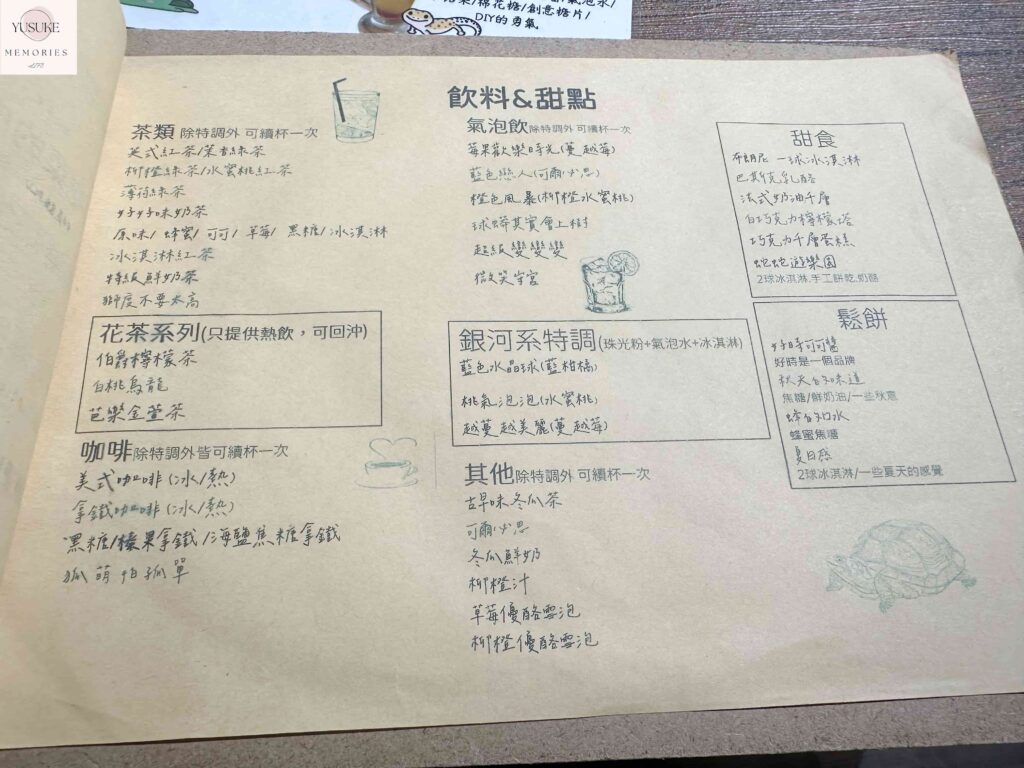 YUSUKE
MEMORIES
棉花糖/創意糖片/
DIY的勇氣
飲料&甜點
茶類 除特調外 可續杯一次
英式紅茶/茉香綠茶
柳橙綠茶/水蜜桃紅茶
薄荷綠茶
好好味奶茶
原味/ 蜂蜜/ 可可/ 草莓/ 黑糖/ 冰淇淋
冰淇淋紅茶
特級鮮奶茶
獅度不要太高
花茶系列(只提供熱飲，可回沖)
伯爵檸檬茶
白桃烏龍
芭樂金萱茶
咖啡除特調外皆可續杯一次
美式咖啡 (冰/熱)
拿鐵咖啡 (冰/熱)
黑糖/榛果拿鐵 /海鹽焦糖拿鐵
狐萌怕孤單
氣泡飲除特調外 可續杯一次
莓果歡樂時光(蔓越莓)
藍色戀人(可爾必思)
橙色風暴(柳橙水蜜桃)
球蟒其實會上樹
超級變變變
微笑守宮
銀河系特調(珠光粉+氣泡水+冰淇淋)
藍色水晶球(藍柑橘)
桃氣泡泡(水蜜桃)
越蔓越美麗(蔓越莓)
其他除特調外 可續杯一次
古早味冬瓜茶
可爾必思
冬瓜鮮奶
柳橙汁
草莓優酪雲泡
柳橙優酪雲泡
甜食
布朗尼 一球冰淇淋
巴斯克乳酪
法式奶油千層
白巧克力檸檬塔
巧克力千層蛋糕
蛇蛇遊樂園
2球冰淇淋.手工餅乾.奶酪
鬆餅
好時可可醬
好時是一個品牌
秋天的味道
焦糖/鮮奶油/一些秋意
蜂的知水
蜂蜜焦糖
夏日然
2球冰淇淋/一些夏天的感覺